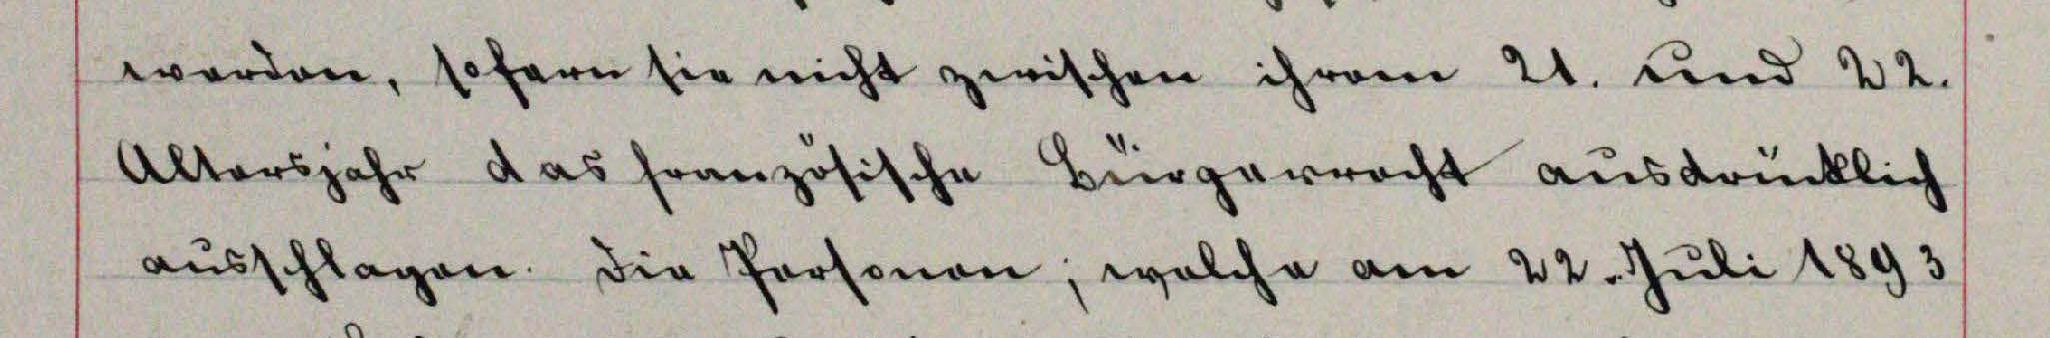 werden, sofern sie nicht zwischen ihrem 21. und 22.
Altersjahr das französische Bürgerrecht ausdrücklich
ausschlagen. Die Personen, welche am 22. Juli 1893